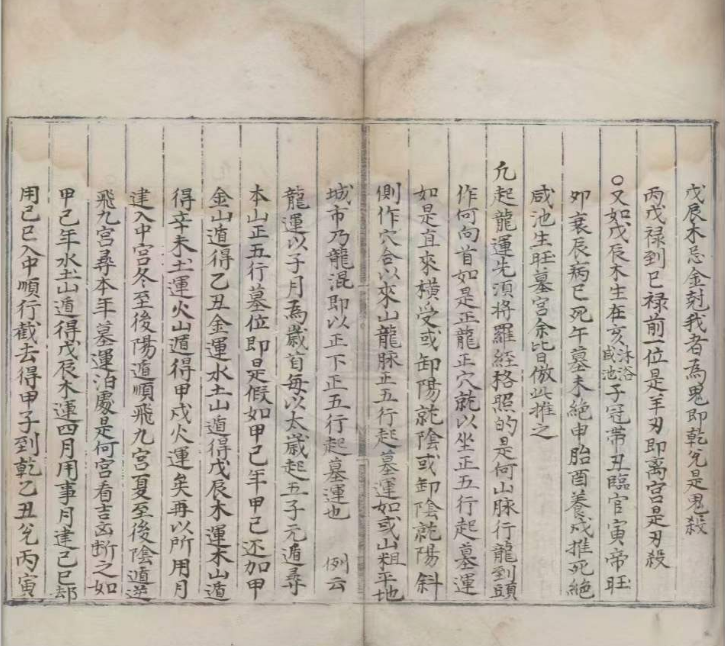 戊辰木忌金尅我者為鬼即乾兊是鬼殺
丙戊祿到巳祿前一位是羊刃即離宮是刃殺
○又如戊辰木生在亥沐浴咸池子冠帯丑臨官寅帝旺
夘衰辰病巳死午墓未絶申胎酉養戍推死絶
咸池生旺墓宮余皆倣此推之
凢起龍運先須將羅經格照的是何山脉行龍到頭
作何向首如是正龍正穴就以坐正五行起墓運
如是直來橫受或卸陽就陰或卸陰就陽斜
側作穴合以來山龍脉正五行起墓運如或山粗平地
城市乃龍混即以正下正五行起墓運也　例云
龍運以子月為歲首每以太歲起五子元遁尋
本山正五行墓位即是假如甲己年甲己还加甲
金山遁得乙丑金運水土山遁得戊辰木運木山遁
得辛未土運火山遁得甲戍火運矣再以所用月
建入中宮冬至後陽遁順飛九宮夏至後陰遁逆
飛九宮尋本年墓運泊處是何宮看吉凶断之如
甲己年水土山遁得戊辰木運四月用事月建己巳却
用己巳入中順行截去得甲子到乾乙丑兊丙寅